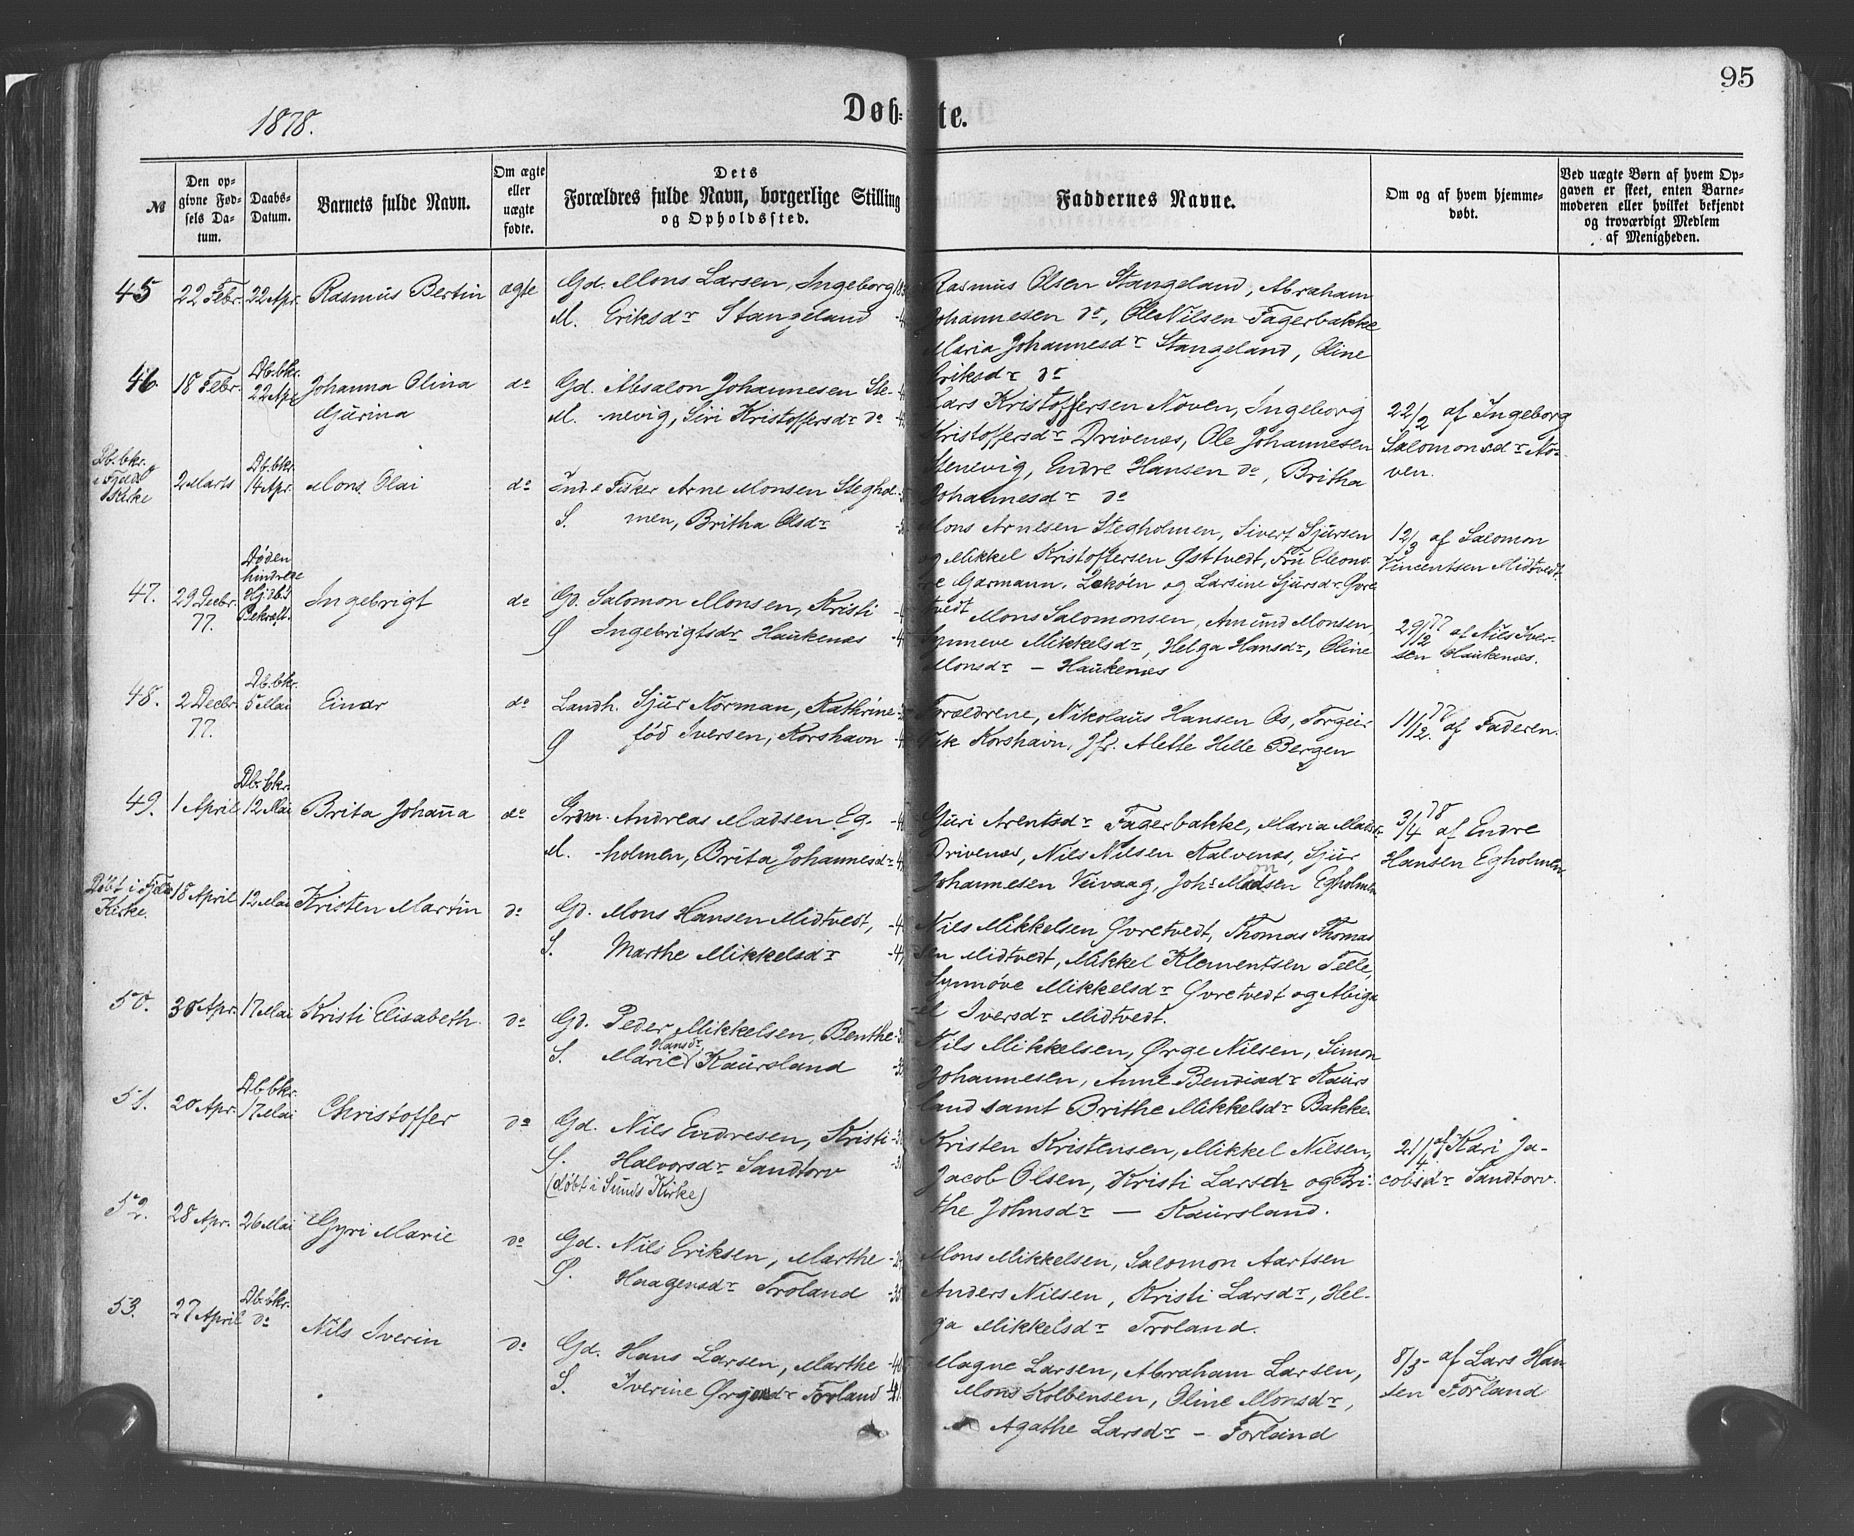 95
1878.
Døb-te.
№
Den op-
givne Fød-
sels Da-
tum.
Daabs-
Datum.
Barnets fulde Navn.
Om ægte
eller
uægte
fødte.
Dets
Forældres fulde Navn, borgerlige Stilling
og Opholdssted.
Faddernes Navne.
Om og af hvem hjemme-
døbt.
Ved uægte Børn af hvem Op-
gaven er skeet, enten Barne-
moderen eller hvilket bekjendt
og troværdigt Medlem
af Menigheden.
45 22 Febr. 22 Apr. Rasmus Bertin ægte
Gd. Mons Larsen, Ingeborg
M. Eriksdr Stangeland
Rasmus Olsen Stangeland, Abraham
Johannesen do, Ole Nilsen Fagerbakke
Maria Johannesdr Stangeland, Oline
Eriksdr do
46. 18 Febr. Db. bkr. 22 Apr. Johanna Olina
Gurina
do
Gd. Absalon Johannesen Ste-
M. nevig, Siri Kristoffersdr do
Lars Kristoffersen Noven, Ingeborg
Kristoffersdr Drivenes, Ole Johannesen
Stenevig, Endre Hansen do, Britha
Johannesdr do
22/2 af Ingeborg
Salomonsdr No-
ven.
Db. bkr.
i Fjeld
Kirke
2 Marts Db. bkr. 14 Apr. Mons Olai do
Inds. Fisker Arne Monsen Steghol-
S. men, Britha Olsdr
Mons Arnesen Stegholmen, Sivert Sjursen
og Mikkel Kristoffersen Østtvedt, Fru Eleono-
re Garmann, Lekøen og Larsine Sjursdr Øvre
tvedt
12/3 af Salomon
Vincentsen Midtvedt.
47. 29 Decbr. 77.
Døden
hindrede
Hjdbs
Bekræft.
Ingebrigt do
Gd. Salomon Monsen, Kristi
S Ingebrigtsdr Haukenes
Mons Salomonsen, Amund Monsen,
Synneve Mikkelsdr, Helga Hansdr, Oline
Monsdr - Haukenes
29/12 77 af Nils Iver-
sen Haukenes.
48. 2 Decbr. 77. Db. bkr. 5 Mai Einar do
Landh. Sjur Norman, Kathrine
S fød Iversen, Korshavn
Forældrene, Nikolaus Hansen Os, Torgeir
Vik Korshavn, Jfr. Alette Helle Bergen
11/12 77. af Faderen.
49. 1 April Db. bkr. 12 Mai Brita Johanna do
Grdm. Andreas Madsen Eg-
M. holmen, Brita Johannesdr
Guri Arentsdr Fagerbakke, Maria Madsdr
Drivenes, Nils Nilsen Kalvenes, Sjur
Johannesen Veivaag, Johs Madsen Egholmen
3/4 78 af Endre
Hansen Egholmen
Døbt i Fjelds
Kirke.
18 April 12 Mai Kristen Martin do
Gd. Mons Hansen Midtvedt,
S. Marthe Mikkelsdr
Nils Mikkelsen Øvretvedt, Thomas Thomas
sen Midtvedt, Mikkel Klementsen Telle,
Synnøve Mikkelsdr Øvretvedt og Abiga
el Iversdr Midtvedt.
50. 30 Apr. 17 Mai Kristi Elisabeth. do
Gd. Peder Mikkelsen, Benthe
Hansdr
S. Marie Kaursland
Nils Mikkelsen, Ørge Nilsen, Simon
Johannesen, Anne Bendixdr Kaurs
land samt Brithe Mikkelsdr Bakke.
51. 20 Apr. Db. bkr. 17 Mai Christoffer do
Gd. Nils Endresen, Kristi
S. Halvorsdr Sandtorv
(døbt i Sunds Kirke)
Kristen Kristensen, Mikkel Nilsen,
Jacob Olsen, Kristi Larsdr og Bri-
the Johnsdr - Kaursland.
21/4 af Kari Ja-
cobsdr Sandtorv.
52. 28 Apr. 26 Mai Gyri Marie do
Gd. Nils Eriksen, Marthe
S. Haagensdr Troland
Mons Mikkelsen, Salomon Aartsen
Anders Nilsen, Kristi Larsdr, Hel-
ga Mikkelsdr Troland.
53. 27 April Db. bkr. do Nils Iverin do
Gd. Hans Larsen, Marthe
S. Iverine Ørgensdr Forland
Magne Larsen, Abraham Larsen,
Mons Kolbensen, Oline Monsdr,
Agathe Larsdr - Forland
8/5- af Lars Han
sen Forland